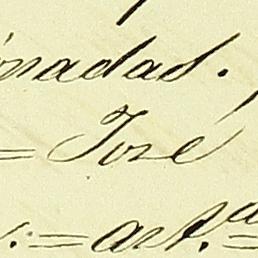 nadas.
= José
: = art.